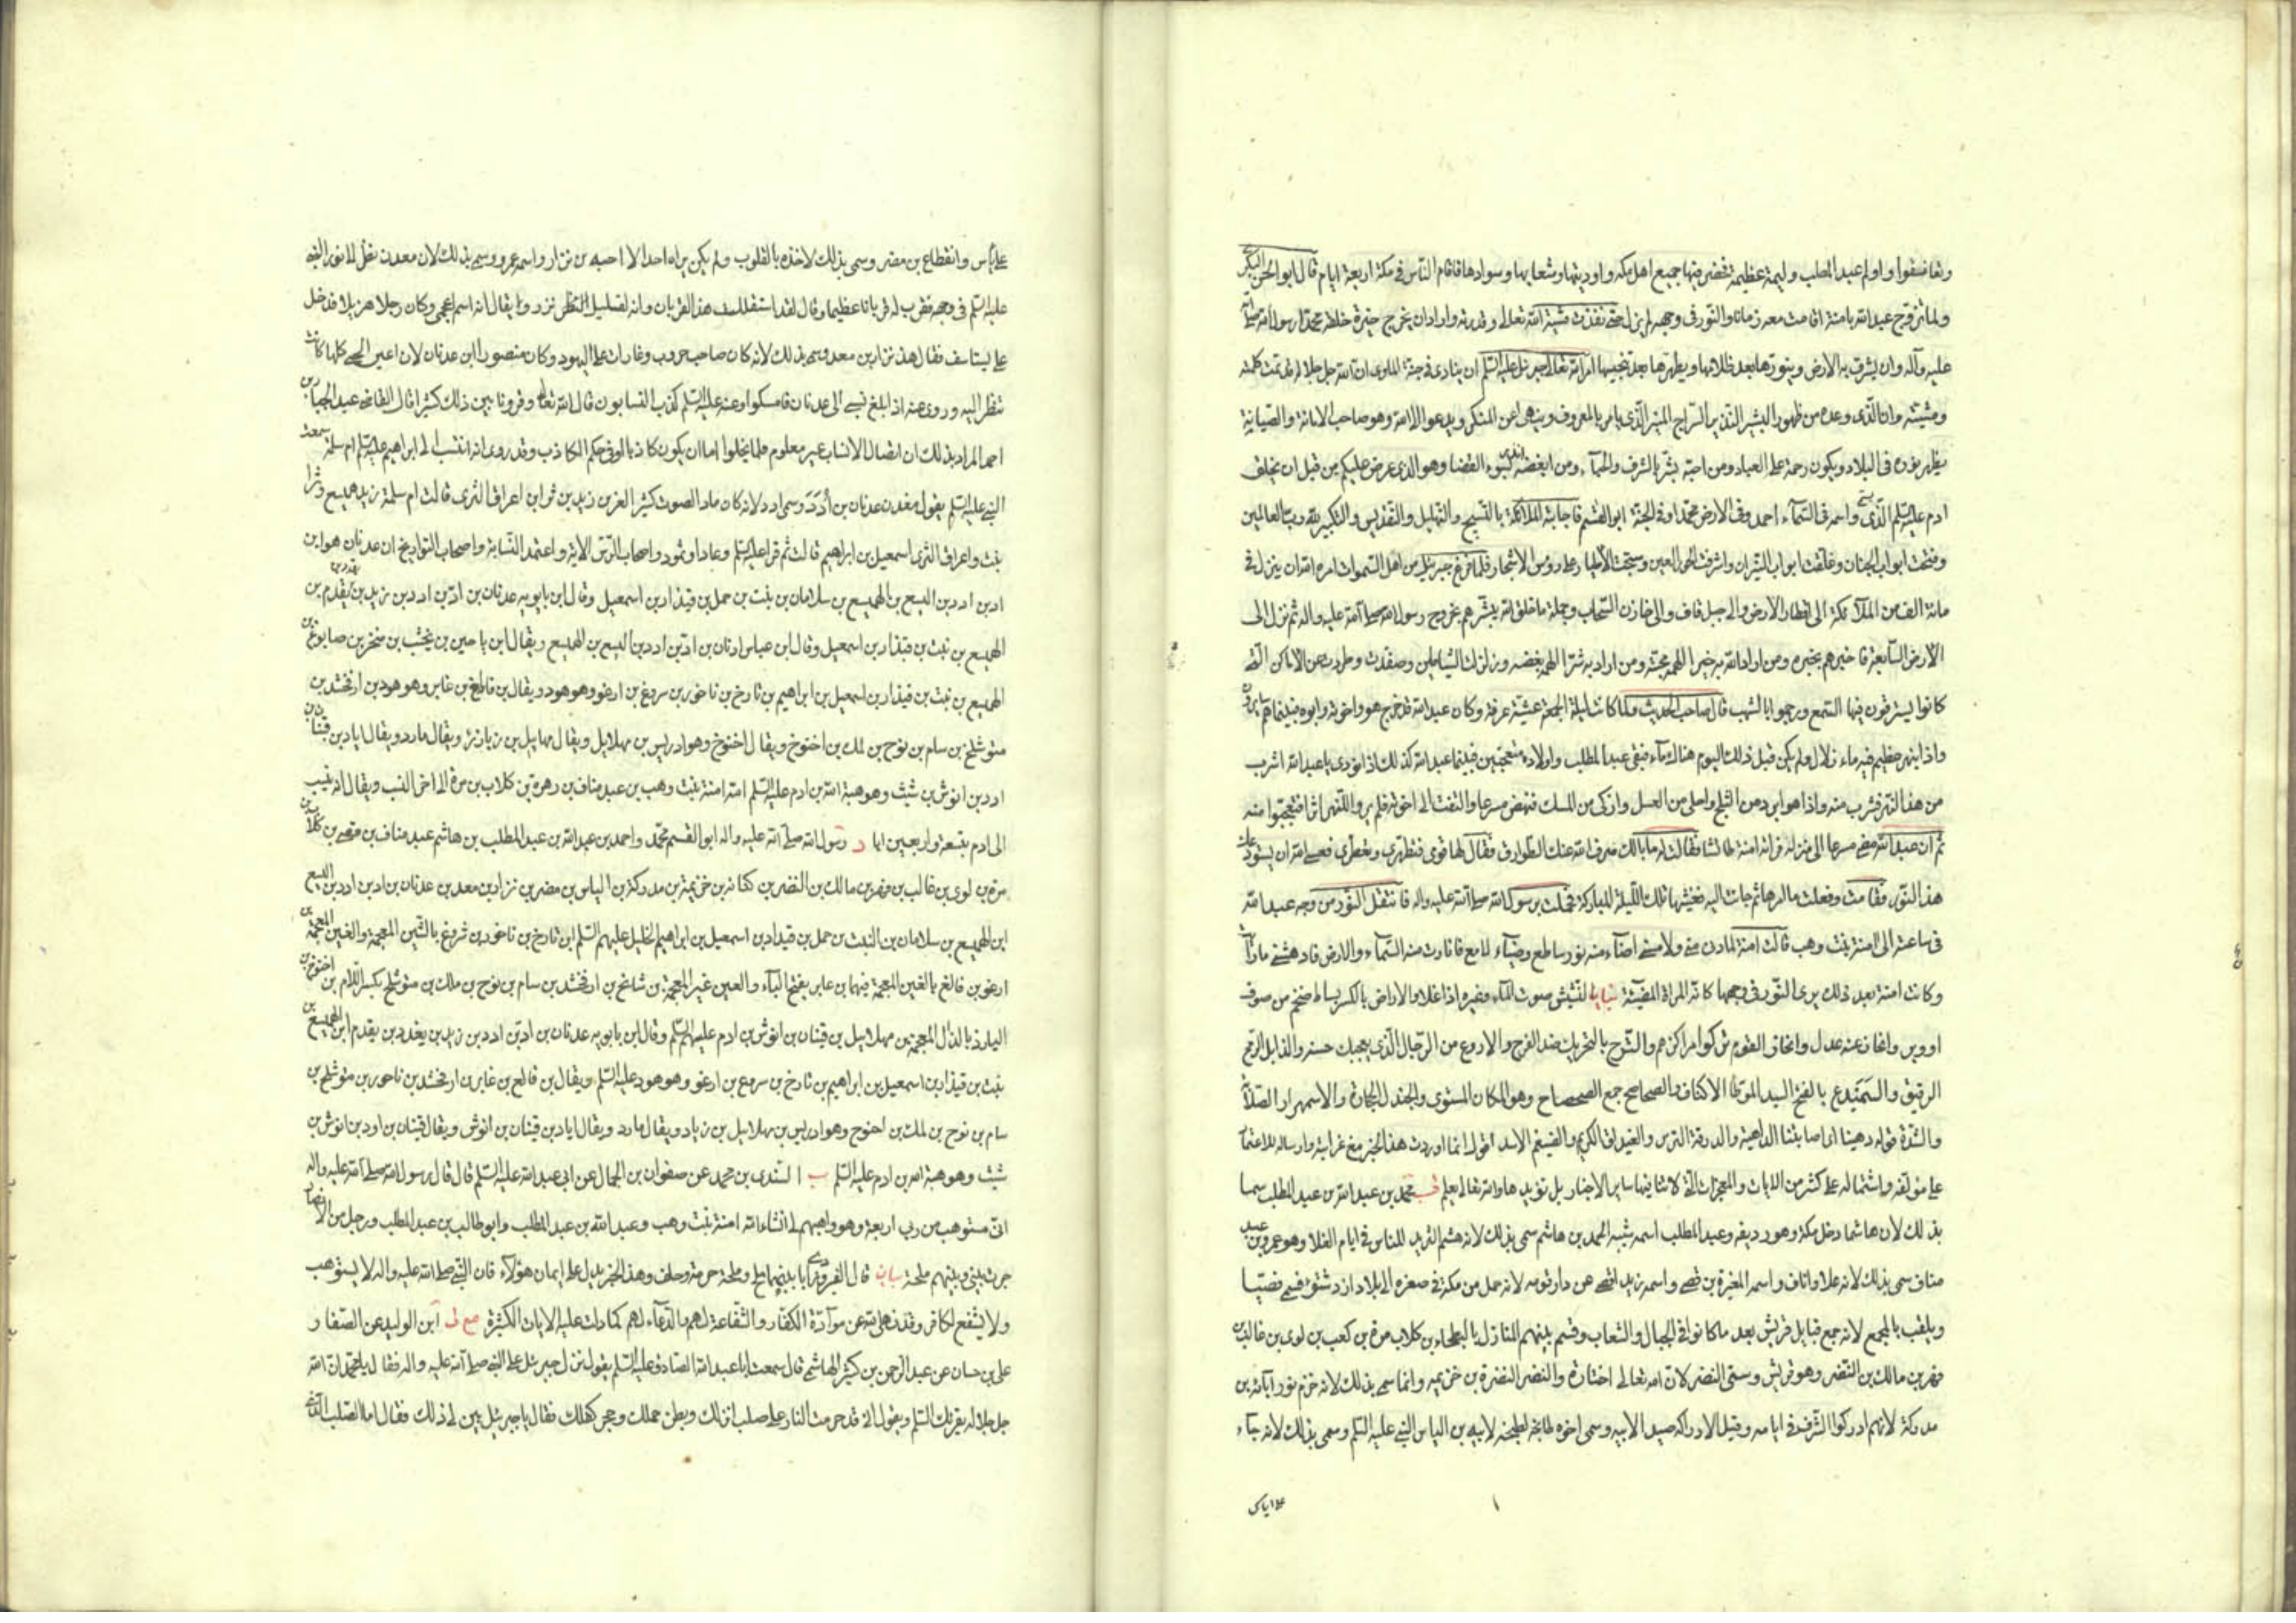 وتفاسفوا واولم عبد المطلب وليمة عظيمة فحضر فيها جميع اهل مكة واوديتها وشعابها وسوادها فاقام الناس فى مكة اربعة ايام قال ابو الحسن البكرى
ولما تزوج عبد الله بامنة اقامت معه زمانا والنور فى وجهه لم يزل حتى نفذت مشية الله تعالى وقدرته واراد ان يخرج خيرة خلقه محمدا رسول الله صلى الله
عليه وآله وان يشرف به الارض وينورها بعد ظلامها ويطهرها بعد تنجيسها امر الله تعالى جبرئيل عليه السلم ان ينادى فى جنة الماوى ان الله جل جلاله قد تمت كلمته
ومشيته وان الذى وعده من ظهور البشير النذير السراج المنير الذى يامر بالمعروف وينهى عن المنكر ويدعو الى الله وهو صاحب الامانة والصيانة
يظهر نوره فى البلاد ويكون رحمة على العباد ومن احبه بشر بالشرف والحباء ومن ابغضه بسوء القضا وهو الذى عرض عليكم من قبل ان يخلق
ادم عليه السلم الذى يسمى واسمه فى السماء احمد وفى الارض محمدا وفى الجنة ابو القسم فاجابته الملائكة بالتسبيح والتهليل والتقديس والتكبير لله رب العالمين
وفتحت ابواب الجنان وغلقت ابواب النيران واشرفت الحور العين وسبحت الاطيار على رؤس الاشجار فلما فرغ جبرئيل من اهل السموات امره الله ان ينزل فى
مائة الف من الملائكة الى اقطار الارض والى جبل قاف والى خازن السحاب وجملة ما خلق الله يبشرهم بخروج رسول الله صلى الله عليه واله ثم نزل الى
الارض السابعة فاخبرهم بخبره ومن اراد الله به خيرا الهمه محبته ومن اراد به شرا الهمه بغضه وزلزلت الشياطين وصفدت وطردت عن الاماكن التى
كانوا يسترقون فيها السمع ورجموا بالشهب قال صاحب الحديث ولما كانت ليلة الجمعة عشية عرفة وكان عبد الله قد خرج هو واخوته وابوه فبينما هم سايرون
واذا بنهر عظيم فيه ماء زلال ولم يكن قبل ذلك اليوم هناك ماء فبقى عبد المطلب واولاده متعجبين فبينما عبد الله كذلك اذ نودى يا عبد الله اشرب
من هذا النهر فشرب منه واذا هو ابرد من الثلج واحلى من العسل وازكى من المسك فنهض مسرعا والتفت الى اخوته فلم يروا للنهر اثرا فتعجبوا منه
ثم ان عبد الله مضى مسرعا الى منزله فراته امنة طائشا فقالت له ما بالك صرف الله عنك الطوارق فقال لها قومى فتطهرى وتعطرى فعسى الله ان يستودعك
هذا النور فقامت وفعلت ما امرها ثم جاءت اليه فغشيها تلك الليلة المباركة فحملت برسول الله صلى الله عليه واله فانتقل النور من وجه عبد الله
فى ساعته الى امنة بنت وهب قالت امنة لما دنى منى ولامسنى اضاء منه نور ساطع وضياء لامع فانارت منه السماء والارض فادهشنى ما رايت
وكانت امنة بعد ذلك يرى النور فى وجهها كانه المراة المضيئة بيان النشيش صوت الماء وغيره اذا غلا والاراض بالكسر بساط ضخم من صوف
او وبر وانحازعنه عدل وانحاز القوم تركوا مراكزهم والشرج بالتحريك ضد الفرج والاروع من الرجال الذى يعجبك حسنه والذابل الرمح
الرقيق والسميدع بالفتح السيد الموطا الاكناف والصحاصح جمع الصحصاح وهو المكان المستوى والجندل الحجارة والاسمهرار الصلابة
والشدة قوله دهينا اى اصابتنا الداهية والدرقة الترس والغيداق الكريم والضيغم الاسد اقول انما اوردت هذا الخبر مع غرابته وارساله للاعتماد
على مؤلفه واشتماله على كثير من الايات والمعجزات التى لا تنافيها ساير الاخبار بل تؤيدها والله تعالى يعلم قب محمد بن عبد الله بن عبد المطلب سمى
بذلك لان هاشما دخل مكة وهو رديفه وعبد المطلب اسمه شيبة الحمد بن هاشم سمى بذلك لانه هشم الثريد للناس فى ايام الغلا وهو عمرو بن عبد
مناف سمى بذلك لانه علا واناف واسمه المغيرة بن قصى واسمه زيد اقصى عن دار قومه لانه حمل من مكة فى صغره الى بلاد ازد شنؤة فسمى قصيا
ويلقب بالمجمع لانه جمع قبايل قريش بعد ما كانوا فى الجبال والشعاب وقسم بينهم المنازل بالبطحاء بن كلاب بن مرة بن كعب بن لوى بن غالب بن
فهر بن مالك بن النضر وهو قريش وسمى النضر لان الله تعالى اختاره والنضر النضرة بن خزيمه وانما سمى بذلك لانه خزم نور ابائه بن
مدركة لانهم ادركوا الشرف فى ايامه وقيل لادراكه صيدا لابيه وسمى اخوه طابخة لطبخه لابيه بن الياس النبى عليه السلم وسمى بذلك لانه جاء
على اياس
على اياس وانقطاع بن مضر وسمى بذلك لاخذه بالقلوب ولم يكن يراه احد الا احبه بن نزار واسمه عمرو وسمى بذلك لان معد نظر الى نور النبى
عليه السلم فى وجهه فقرب له قربانا عظيما وقال لقد استقللت هذا القربان وانه لقليل نزر ويقال انه اسم اعجمى وكان رجلا هزيلا فدخل
على يستاسف فقال هذا نزار بن معد وسمى بذلك لانه كان صاحب حروب وغارات على اليهود وكان منصورا ابن عدنان لان اعين الحى كلها كانت
تنظر اليه وروى عنه اذا بلغ نسبى الى عدنان فامسكوا وعنه عليه السلم كذب النسابون قال الله تعالى وقرونا بين ذلك كثيرا قال القاضى عبد الجبار بن
احمد المراد بذلك ان اتصال الانساب غير معلوم فلا يخلوا اما ان يكون كاذبا او فى حكم الكاذب وقد روى انه انتسب الى ابراهيم عليه السلم ام سلمة سمعت
النبى عليه السلم يقول معد بن عدنان بن ادد وسمى ادد لانه كان ماد الصوت كثير العز بن زيد بن ثرا بن اعراق الثرى قالت ام سلمة زيد هميسع وثرا
بنت واعراق الثرى اسمعيل بن ابراهيم قالت ثم قرا عليه السلم وعادا وثمود واصحاب الرس الاية واعتمد النسابة واصحاب التواريخ ان عدنان هو ابن
اد بن ادد بن اليسع بن الهميسع بن سلامان بن بنت بن حمل بن قيذار بن اسمعيل وقال ابن بابويه عدنان بن اد بن ادد بن زيد بن يقدد بن يقدم بن
الهميسع بن نبت بن قيذار بن اسمعيل وقال ابن عباس عدنان بن اد بن ادد بن اليسع بن الهميسع ويقال ابن يامين بن يحشب بن منخر بن صابوغ بن
الهميسع بن نبت بن قيذار بن اسمعيل بن ابراهيم بن تارخ بن ناخور بن سروغ بن ارغو وهو هود ويقال بن فالغ بن غابر وهو هود بن ارفخشد بن
متوشلخ بن سام بن نوح بن لمك بن اخنوخ ويقال اخنوخ وهو ادريس بن مهلايل ويقال مهاييل بن زيارز ويقال مارد ويقال اياد بن قينان بن
ادد بن انوش بن شيث وهو هبة الله بن ادم عليه السلم امه امنة بنت وهب بن عبد مناف بن زهرة بن كلاب بن مرة الى اخر النسب ويقال انه ينسب
الى ادم بتسعة واربعين ابا د رسول الله صلى الله عليه واله ابو القسم محمد واحمد بن عبد الله بن عبد المطلب بن هاشم عبد مناف بن قصى بن كلاب بن
مرة بن لوى بن غالب بن فهر بن مالك بن النضر بن كنانة بن خزيمة بن مدركة بن الياس بن مضر بن نزار بن معد بن عدنان بن اد بن ادد بن اليسع
ابن الهميسع بن سلامان بن النبت بن حمل بن قيدار بن اسمعيل بن ابراهيم الخليل عليهم السلم ابن تارخ بن ناخور بن شروغ بالشين المعجمة والغين المعجمة بن
ارغو بن فالغ بالغين المعجمة فيهما بن عابر بفتح الباء والعين غير المعجمة بن شالخ بن ارفخشد بن سام بن نوح بن مالك بن متوشلخ بكسر اللام بن اخنوخ بن
اليارذ بالذال المعجمة بن مهلاييل بن قينان بن انوش بن ادم عليهم السلم وقال ابن بابويه عدنان بن اد بن ادد بن زيد بن يقدد بن يقدم ابن الهميسع بن
نبت بن قيذار بن اسمعيل بن ابراهيم بن تارخ بن سروغ بن ارغو وهو هود عليه السلم ويقال بن فالغ بن غابر بن ارفخشد بن ناحور بن متوشلخ بن
سام بن نوح بن لمك بن احنوخ وهو ادريس بن مهلاييل بن زياد ويقال مارد ويقال اياد بن قينان بن انوش ويقال قينان بن اود بن انوش بن
شيث وهو هبة الله بن ادم عليه السلم ب السندى بن محمد عن صفوان بن الجمال عن ابى عبد الله عليه السلم قال قال رسول الله صلى الله عليه واله
انى مستوهب من ربى اربعة وهو واهبهم لى انشاء الله امنة بنت وهب وعبد الله بن عبد المطلب وابو طالب بن عبد المطلب ورجل من الانصار
جرت بينى وبينهم ملحة بيان قال الفيروزآبادى بينهما ملح وملحة حرمة وحلف وهذا الخبر يدل على ايمان هؤلاء فان النبى صلى الله عليه واله لا يستوهب
ولا يشفع لكافر وقد نهى الله عن موادة الكفار والشفاعة لهم والدعاء لهم كما دلت عليه الايات الكثيرة مع لى ابن الوليد عن الصفار
على بن حسان عن عبد الرحمن بن كثير الهاشمى قال سمعت ابا عبد الله الصادق عليه السلم يقول نزل جبرئيل على النبى صلى الله عليه واله فقال يا محمد ان الله
جل جلاله يقرئك السلم ويقول انى قد حرمت النار على صلب انزلك وبطن حملك وحجر كفلك فقال يا جبرئيل بين لى ذلك فقال اما الصلب الذى